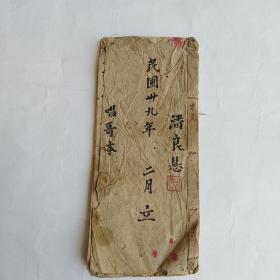 潘良慧
民國卅九年 二月 立
唱哥本